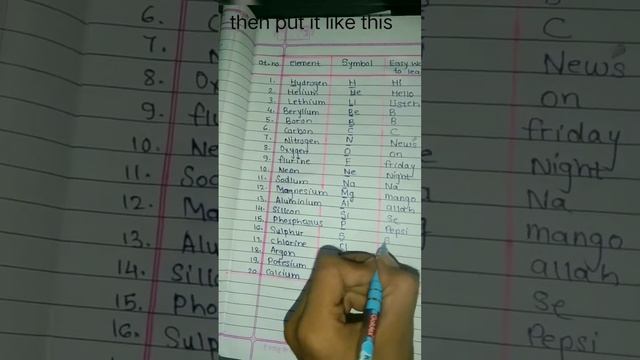 then put it like this
At.no element Symbol Easy wa to lea
1. Hydrogen H Hi
2 Helium He Hello
3. Lethium Li listen
4. Beryllium Be B
5. Boron B B
6. Carbon C C
7. Nitrogen N News
8. Oxygen O on
9. flurine F friday
10. Neon Ne Night
11. Sodium Na Na
12 Magnesium Mg mango
13. Aluminium Al allah
14. Silicon Si Se
15. Phosphorus P Pepsi
16. Sulphur S
17. chlorine Cl
18. Argon
19. Potesium
20. Calcium
6. C
7. N
8. Ox
9. flu
10. Ne
11. Soc
12. Ma
13. Alu
14. Sill
15. Pho
16. Sulp
C
News
on
friday
Night
Na
mango
allah
Se
Pepsi